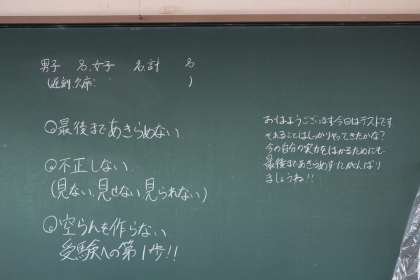 男子 名.女子 名.計 名
(遅刻.欠席: )
◎最後まであきらめない
◎不正しない
(見ない.見せない.見られない)
◎空らんを作らない
受験への第1歩!!
おはようございます今日はテストです
やれることはしっかりやってきたかな?
今の自分の実力をはかるためにも
最後まであきらめずにがんばり
ましょうね!!